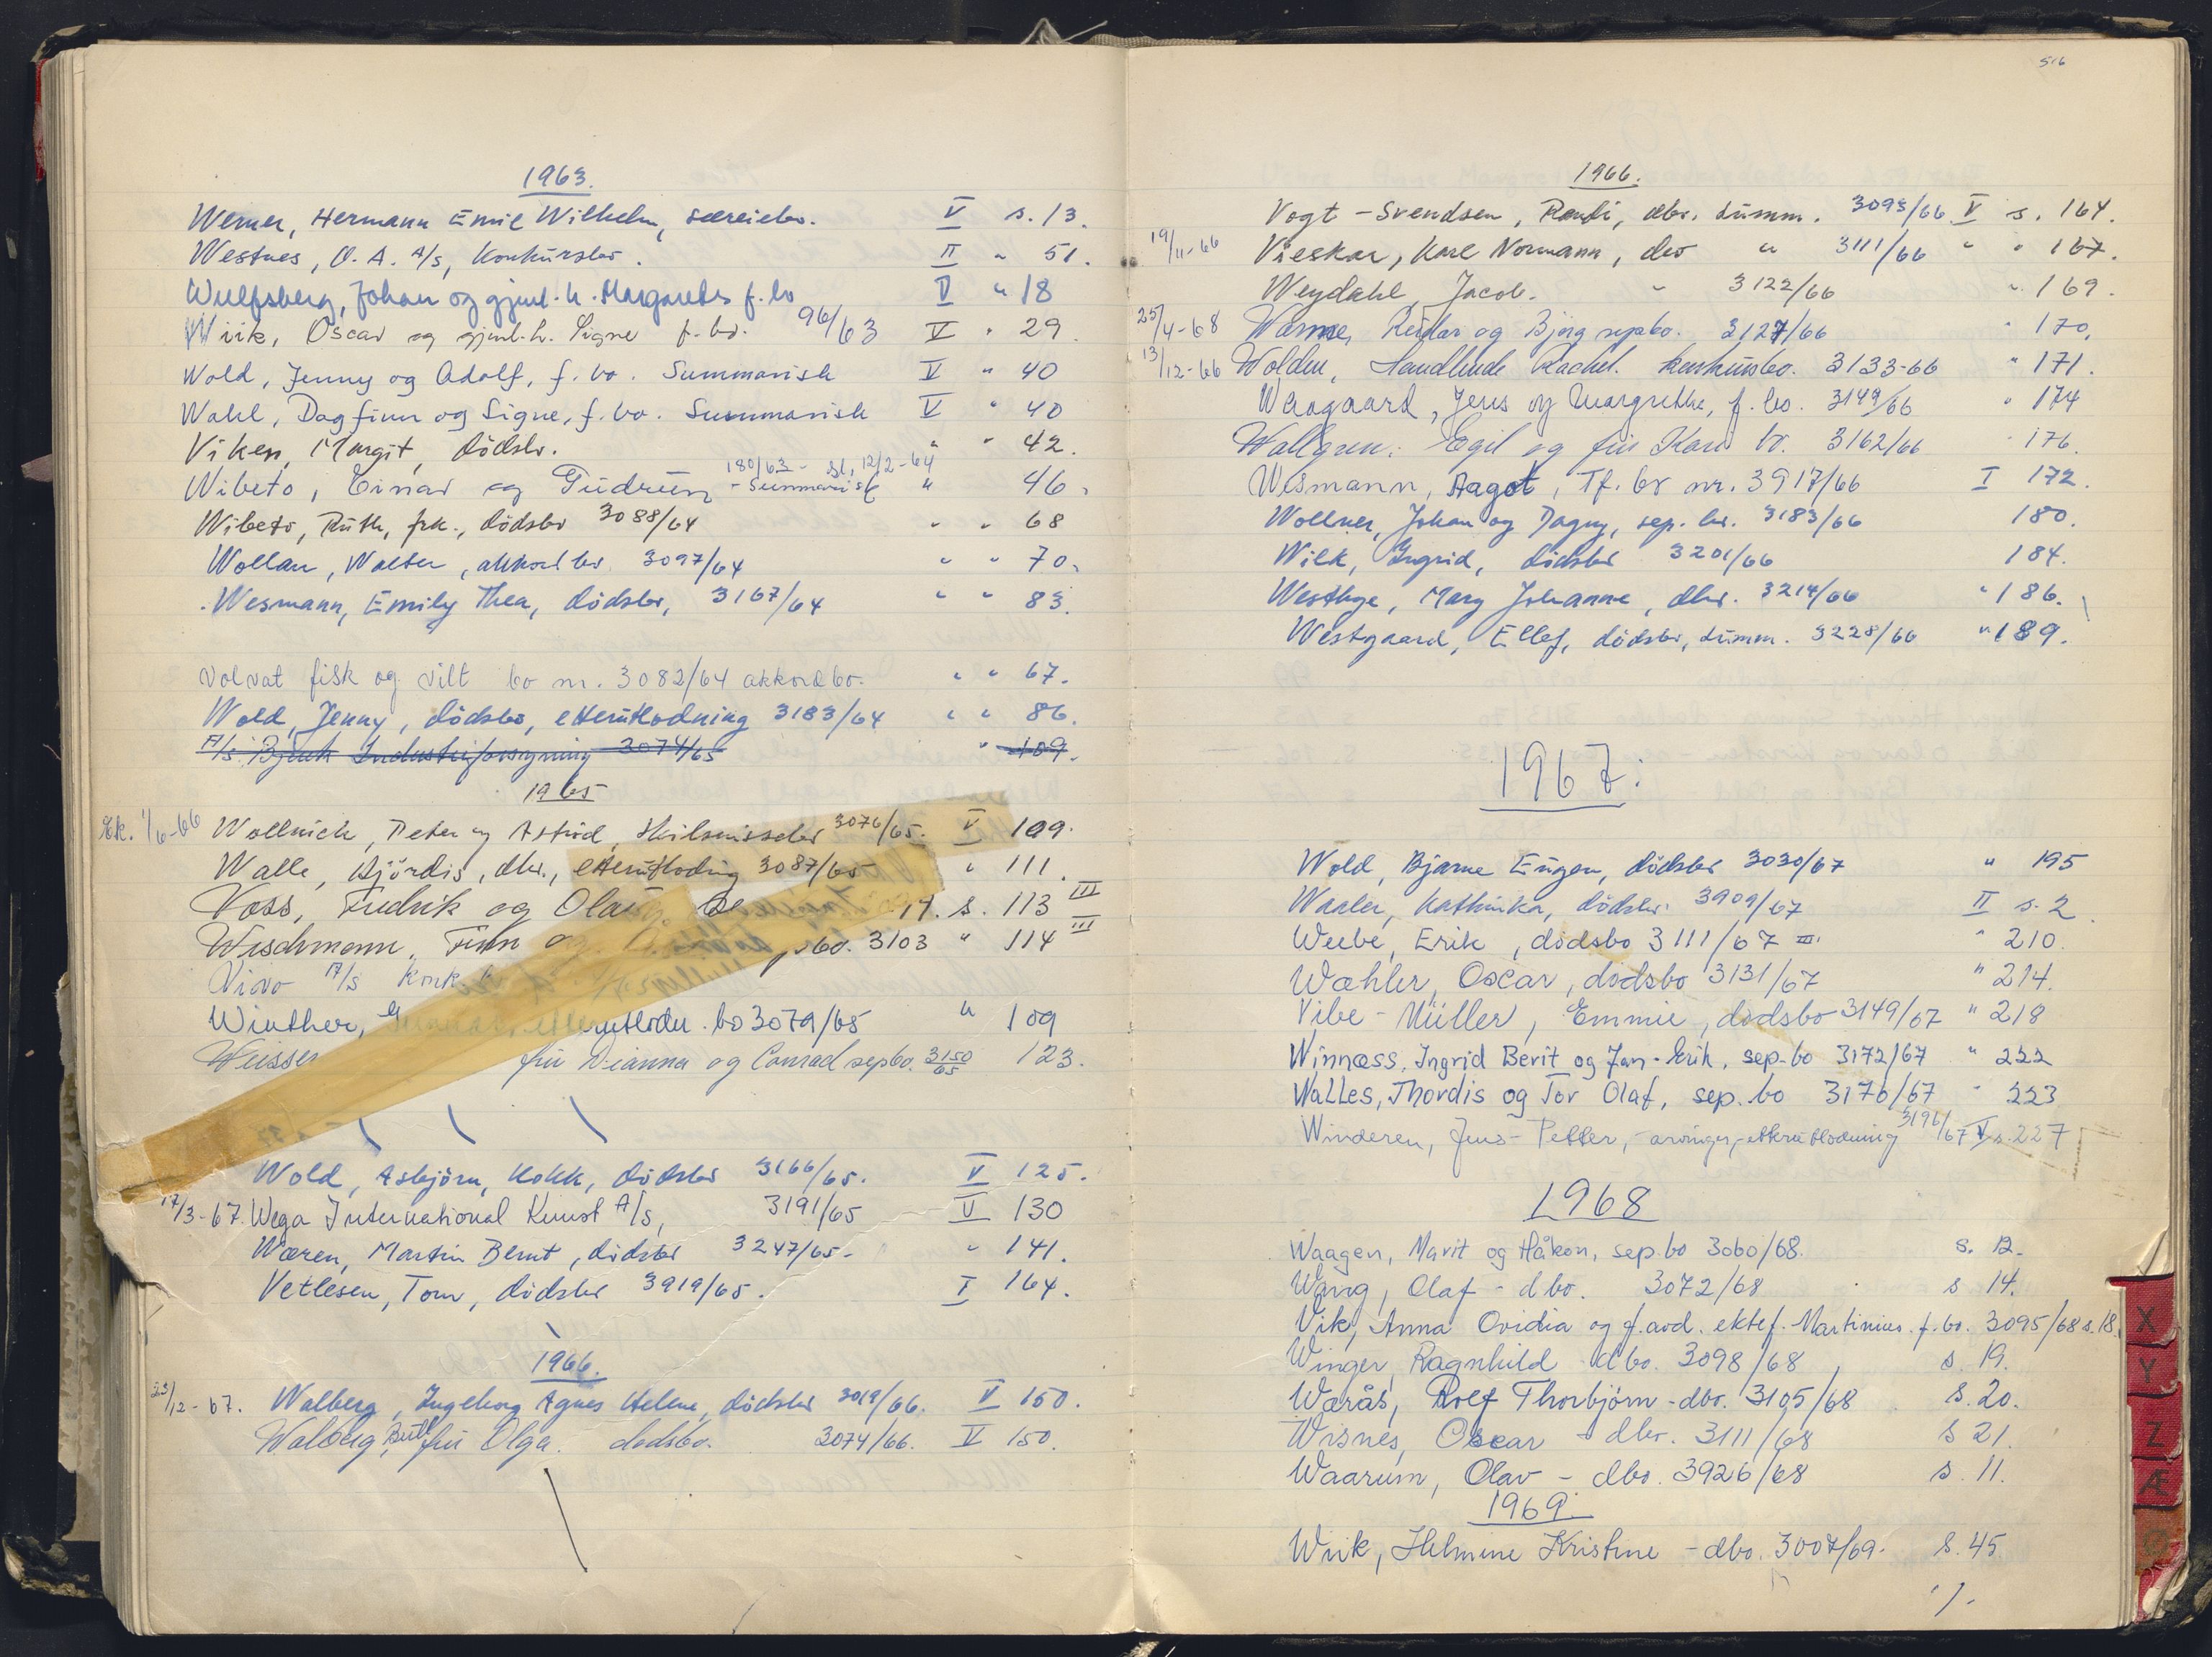 1963.
Werner, Hermann Emil Wilhelm, særeiebo. V s. 13.
Westnes, O. A. A/s, konkursbo. II " 51.
Wulfsberg, Johan og gjenl. h. Margarethe f. bo V " 18
Wiik, Oscar og gjenl. h. Signe f. bo. 96/63 V " 29.
Wold, Jenny og Adolf, f. bo. Summarisk V " 40
Wahl, Dagfinn og Signe, f. bo. Summarisk V " 40
Viken, Margit, dødsbo. " " 42.
180/63 - sl. 12/2-64
Wibeto, Einar og Gudrun - Summarisk " 46.
Wibeto, Ruth, frk., dødsbo 3088/64 " " 68
Wollan, Walter, akkordbo. 3097/64 " " 70.
Wesmann, Emily Thea, dødsbo, 3167/64 " " 83.
Volvat fisk og vilt bo nr. 3082/64 akkordbo. " " 67.
Wold, Jenny, dødsbo, etterutlodning 3183/64 " " 86.
A/s Bjerk Industriforsyning 3074/65 " 109.
1965
Ek. 1/6-66 Wollnick, Peter og Astrid, skilsmissebo 3076/65. V 109.
Walle, Hjørdis, dbo., etterutlodning 3087/65 " 111.
Voss, Fredrik og Olaug, s. 113 III
Wischmann, Finn og bo. 3103 " 114 III
Vivo A/s konk.
Winther, etterutlodn. bo 3079/65 " 109
fru Dianna og Conrad sepbo. 3150/65 123.
Wold, Asbjørn, kokk, dødsbo 3166/65. V 125.
17/3-67. Wega International Kunst A/s, 3191/65 V 130
Wæren, Martin Bernt, dødsbo 3247/65- " 141.
Vetlesen, Tom, dødsbo 3919/65. I 164.
1966.
23/12-67. Walberg, Ingeborg Agnes Helene, dødsbo 3019/66. V 150.
Walberg, fru Olga. dødsbo. 3074/66. V 150.
516
1966.
Vogt-Svendsen, Randi, dbo. summ. 3093/66 V s. 164.
19/11-66 Vieskar, Karl Normann, dbo " 3111/66 " " 167.
Weydahl, Jacob. " 3122/66 " 169.
25/4-68 Warme, Reidar og Bjørg sepbo. 3127/66 " 170.
13/12-66 Wolden, Handlende Rachel. konkursbo. 3133-66 " 171.
Waagaard, Jens og Margrethe, f. bo. 3149/66 " 174
Wallgren, Egil og fru Kari bo. 3162/66 " 176.
Wesmann, Aagot, Tf. bo nr. 3917/66 I 172.
Wollner, Johan og Dagny, sep. bo. 3183/66 180.
Wilk, Ingrid, dødsbo 3201/66 184.
Westbye, Mary Johanne, dbo. 3214/66 " 186.
Westgaard, Ellef, dødsbo, summ. 3228/66 " 189.
1967:
Wold, Bjarne Eugen, dødsbo 3030/67 " 195
Waaler, Kathinka, dødsbo. 3909/67 II s. 2.
Weebe, Erik, dødsbo 3111/67 III " 210.
Wæhler, Oscar, dødsbo 3131/67 " 214.
Vibe-Müller, Emmie, dødsbo 3149/67 " 218
Winnæss, Ingrid Berit og Jan-Erik, sep.bo 3172/67 " 222
Walles, Thordis og Tor Olaf, sep. bo 3176/67 " 223
Winderen, Jens-Petter, - arvinger, - etterutlodning 3196/67 V s. 227
1968
Waagen, Marit og Håkon, sep.bo 3060/68. s. 12.
Wang, Olaf - dbo. 3072/68 s 14.
Vik, Anna Ovidia og f.avd. ektef. Martinius. f. bo. 3095/68 s. 18.
Winger, Ragnhild - dbo. 3098/68, s. 19.
Wærås, Rolf Thorbjørn - dbo. 3105/68 s. 20.
Wisnes, Oscar - dbo. 3111/68 s 21.
Waarum, Olav - dbo. 3926/68 s. 11.
1969.
Wiik, Helmine Kristine - dbo. 3007/69. s. 45
X
Y
Z
Æ
Ø